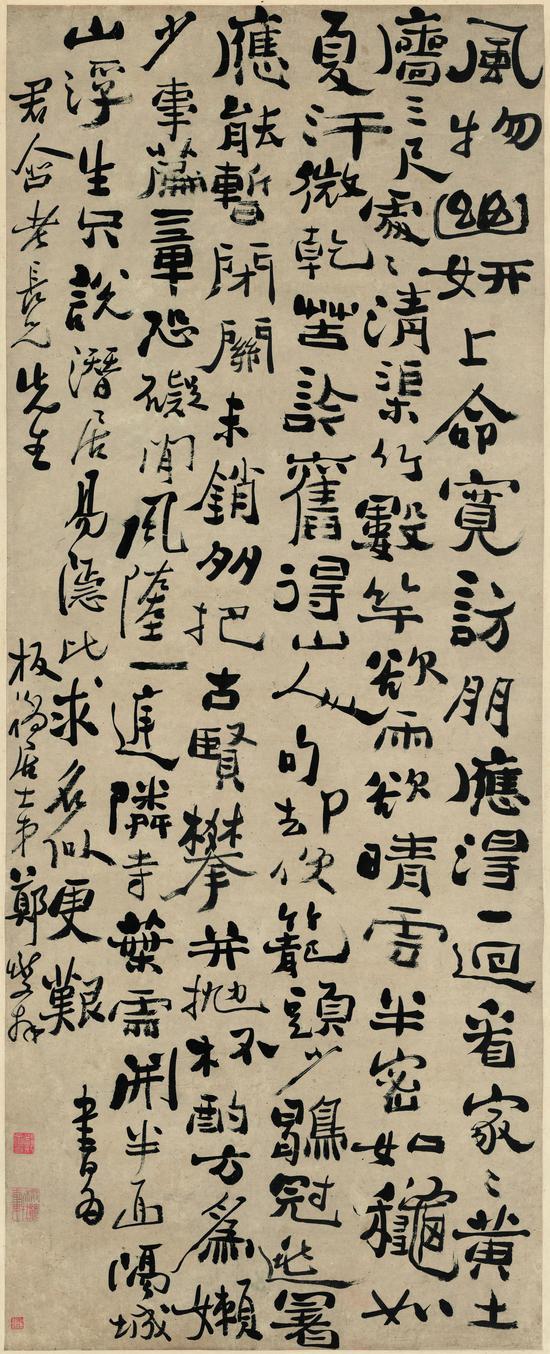 風物幽妍上命寬訪朋應得一迴看家〻黃土
牆三尺處〻清渠竹數竿欲雨欲晴雲半密如穐如
夏汗微乾苦吟舊得山人句却便籠頭少鶡冠逃署
應能暫閉關未銷多把古賢攀并拋杯酌方為懶
少事篇章恐礙閒風墮一庭鄰寺葉雲開半面隔城
山浮生只說潛居易隱比求名似更艱 書為
君老長兄先生 板橋居士弟鄭燮拜